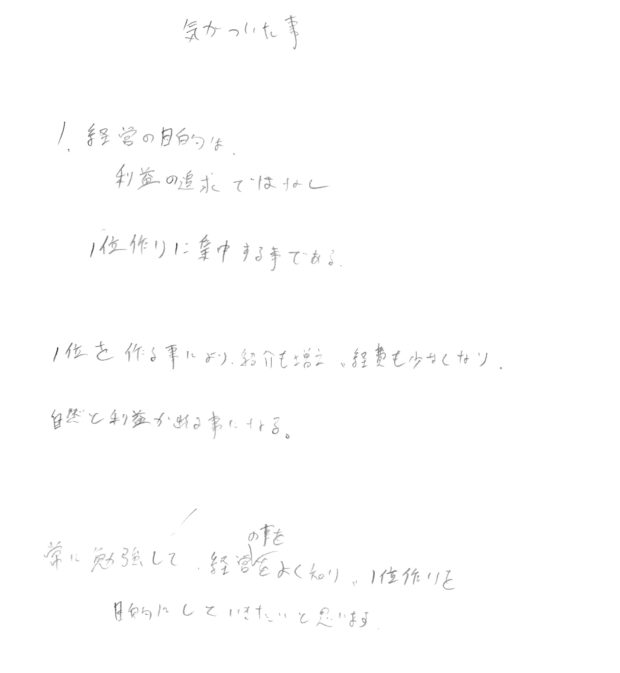 気がついた事
1. 経営の目的は、
利益の追求ではなし
1位作りに集中する事である。
1位を作る事により、紹介も増え、経費も少なくなり、
自然と利益が出る事になる。
常に勉強して、経営の事をよく知り、1位作りを
目的にしていきたいと思います。